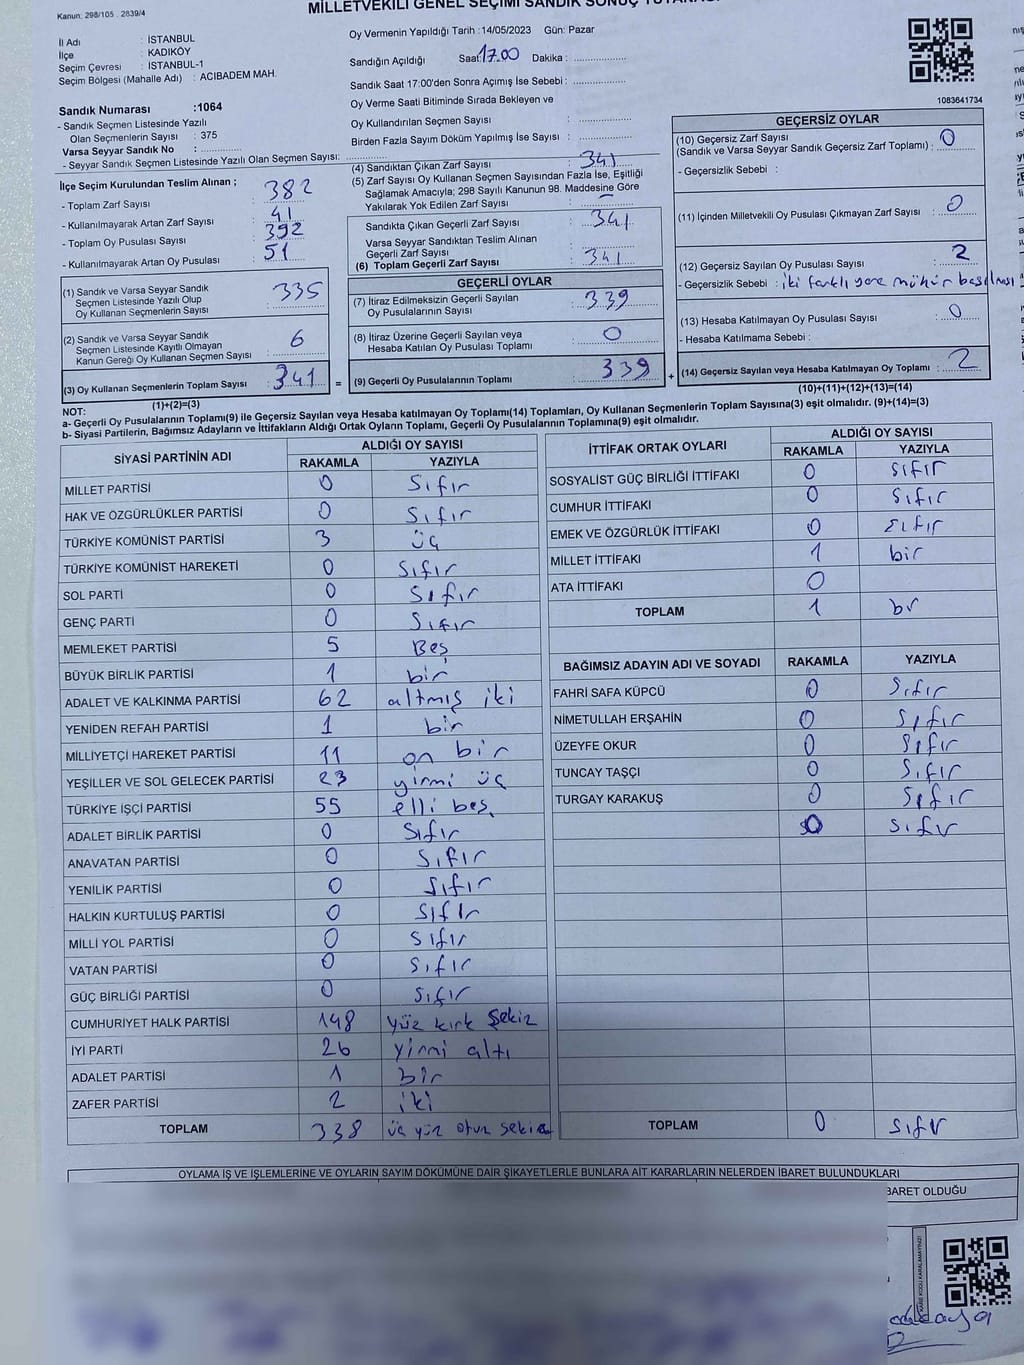 MİLLETVEKİLİ GENEL SEÇİMİ SANDIK SONUÇ
Kanun: 298/105 2839/4
İl Adı : İSTANBUL
İlçe : KADIKÖY
Seçim Çevresi : İSTANBUL-1
Seçim Bölgesi (Mahalle Adı) : ACIBADEM MAH.
Sandık Numarası :1064
- Sandık Seçmen Listesinde Yazılı
Olan Seçmenlerin Sayısı : 375
Varsa Seyyar Sandık No :
- Seyyar Sandık Seçmen Listesinde Yazılı Olan Seçmen Sayısı:
İlçe Seçim Kurulundan Teslim Alınan ;
- Toplam Zarf Sayısı : 382
- Kullanılmayarak Artan Zarf Sayısı : 41
- Toplam Oy Pusulası Sayısı : 392
- Kullanılmayarak Artan Oy Pusulası : 51
(1) Sandık ve Varsa Seyyar Sandık
Seçmen Listesinde Yazılı Olup
Oy Kullanan Seçmenlerin Sayısı : 335
(2) Sandık ve Varsa Seyyar Sandık
Seçmen Listesinde Kayıtlı Olmayan
Kanun Gereği Oy Kullanan Seçmen Sayısı : 6
(3) Oy Kullanan Seçmenlerin Toplam Sayısı : 341 =
(1)+(2)=(3)
Oy Vermenin Yapıldığı Tarih :14/05/2023 Gün: Pazar
Sandığın Açıldığı Saat:17.00 Dakika :
Sandık Saat 17:00'den Sonra Açımış İse Sebebi :
Oy Verme Saati Bitiminde Sırada Bekleyen ve
Oy Kullandırılan Seçmen Sayısı :
Birden Fazla Sayım Döküm Yapılmış İse Sayısı :
(4) Sandıktan Çıkan Zarf Sayısı : 341
(5) Zarf Sayısı Oy Kullanan Seçmen Sayısından Fazla İse, Eşitliği
Sağlamak Amacıyla; 298 Sayılı Kanunun 98. Maddesine Göre
Yakılarak Yok Edilen Zarf Sayısı :
Sandıkta Çıkan Geçerli Zarf Sayısı : 341
Varsa Seyyar Sandıktan Teslim Alınan
Geçerli Zarf Sayısı :
(6) Toplam Geçerli Zarf Sayısı : 341
GEÇERLİ OYLAR
(7) İtiraz Edilmeksizin Geçerli Sayılan
Oy Pusulalarının Sayısı : 339
(8) İtiraz Üzerine Geçerli Sayılan veya
Hesaba Katılan Oy Pusulası Toplamı : 0
(9) Geçerli Oy Pusulalarının Toplamı : 339 +
1083641734
GEÇERSİZ OYLAR
(10) Geçersiz Zarf Sayısı
(Sandık ve Varsa Seyyar Sandık Geçersiz Zarf Toplamı) : 0
- Geçersizlik Sebebi :
(11) İçinden Milletvekili Oy Pusulası Çıkmayan Zarf Sayısı : 0
(12) Geçersiz Sayılan Oy Pusulası Sayısı : 2
- Geçersizlik Sebebi : iki farklı yere mühür basılması
(13) Hesaba Katılmayan Oy Pusulası Sayısı : 0
- Hesaba Katılmama Sebebi :
(14) Geçersiz Sayılan veya Hesaba Katılmayan Oy Toplamı : 2
(10)+(11)+(12)+(13)=(14)
NOT:
a- Geçerli Oy Pusulalarının Toplamı(9) ile Geçersiz Sayılan veya Hesaba katılmayan Oy Toplamı(14) Toplamları, Oy Kullanan Seçmenlerin Toplam Sayısına(3) eşit olmalıdır. (9)+(14)=(3)
b- Siyasi Partilerin, Bağımsız Adayların ve İttifakların Aldığı Ortak Oyların Toplamı, Geçerli Oy Pusulalarının Toplamına(9) eşit olmalıdır.
SİYASİ PARTİNİN ADI ALDIĞI OY SAYISI
RAKAMLA YAZIYLA
MİLLET PARTİSİ 0 Sıfır
HAK VE ÖZGÜRLÜKLER PARTİSİ 0 Sıfır
TÜRKİYE KOMÜNİST PARTİSİ 3 üç
TÜRKİYE KOMÜNİST HAREKETİ 0 Sıfır
SOL PARTİ 0 Sıfır
GENÇ PARTİ 0 Sıfır
MEMLEKET PARTİSİ 5 Beş
BÜYÜK BİRLİK PARTİSİ 1 bir
ADALET VE KALKINMA PARTİSİ 62 altmış iki
YENİDEN REFAH PARTİSİ 1 bir
MİLLİYETÇİ HAREKET PARTİSİ 11 on bir
YEŞİLLER VE SOL GELECEK PARTİSİ 23 yirmi üç
TÜRKİYE İŞÇİ PARTİSİ 55 elli beş
ADALET BİRLİK PARTİSİ 0 Sıfır
ANAVATAN PARTİSİ 0 Sıfır
YENİLİK PARTİSİ 0 Sıfır
HALKIN KURTULUŞ PARTİSİ 0 Sıfır
MİLLİ YOL PARTİSİ 0 Sıfır
VATAN PARTİSİ 0 Sıfır
GÜÇ BİRLİĞİ PARTİSİ 0 Sıfır
CUMHURİYET HALK PARTİSİ 148 yüz kırk Şekiz
İYİ PARTİ 26 yirmi altı
ADALET PARTİSİ 1 bir
ZAFER PARTİSİ 2 iki
TOPLAM 338 üç yüz otuz sekiz
İTTİFAK ORTAK OYLARI ALDIĞI OY SAYISI
RAKAMLA YAZIYLA
SOSYALİST GÜÇ BİRLİĞİ İTTİFAKI 0 Sıfır
CUMHUR İTTİFAKI 0 Sıfır
EMEK VE ÖZGÜRLÜK İTTİFAKI 0 Sıfır
MİLLET İTTİFAKI 1 bir
ATA İTTİFAKI 0
TOPLAM 1 br
BAĞIMSIZ ADAYIN ADI VE SOYADI RAKAMLA YAZIYLA
FAHRİ SAFA KÜPCÜ 0 Sıfır
NİMETULLAH ERŞAHİN 0 Sıfır
ÜZEYFE OKUR 0 Sıfır
TUNCAY TAŞÇI 0 Sıfır
TURGAY KARAKUŞ 0 Sıfır
0 Sıfır
TOPLAM 0 Sıfır
OYLAMA İŞ VE İŞLEMLERİNE VE OYLARIN SAYIM DÖKÜMÜNE DAİR ŞİKAYETLERLE BUNLARA AİT KARARLARIN NELERDEN İBARET BULUNDUKLARI
BARET OLDUĞU
KARE KODU KARALAMAYINIZ!